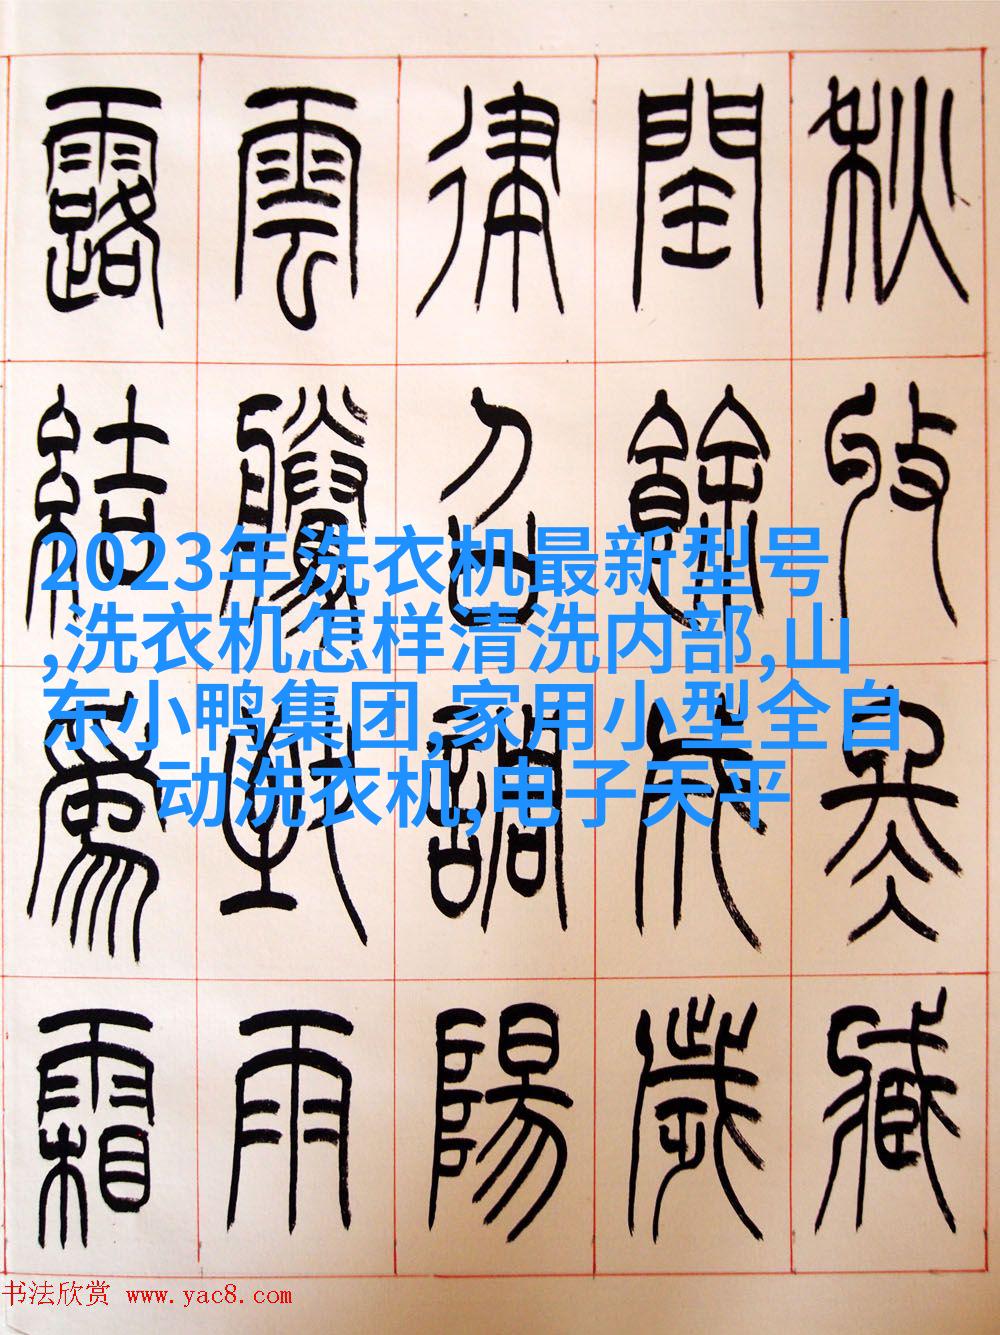 秋收冬臧
閏餘成歲
律召調陽
雲騰致雨
露結爲霜
2023年洗衣机最新型号
,洗衣机怎样清洗内部,山
东小鸭集团,家用小型全自
动洗衣机,电子天平
书法欣赏 www.yac8.com